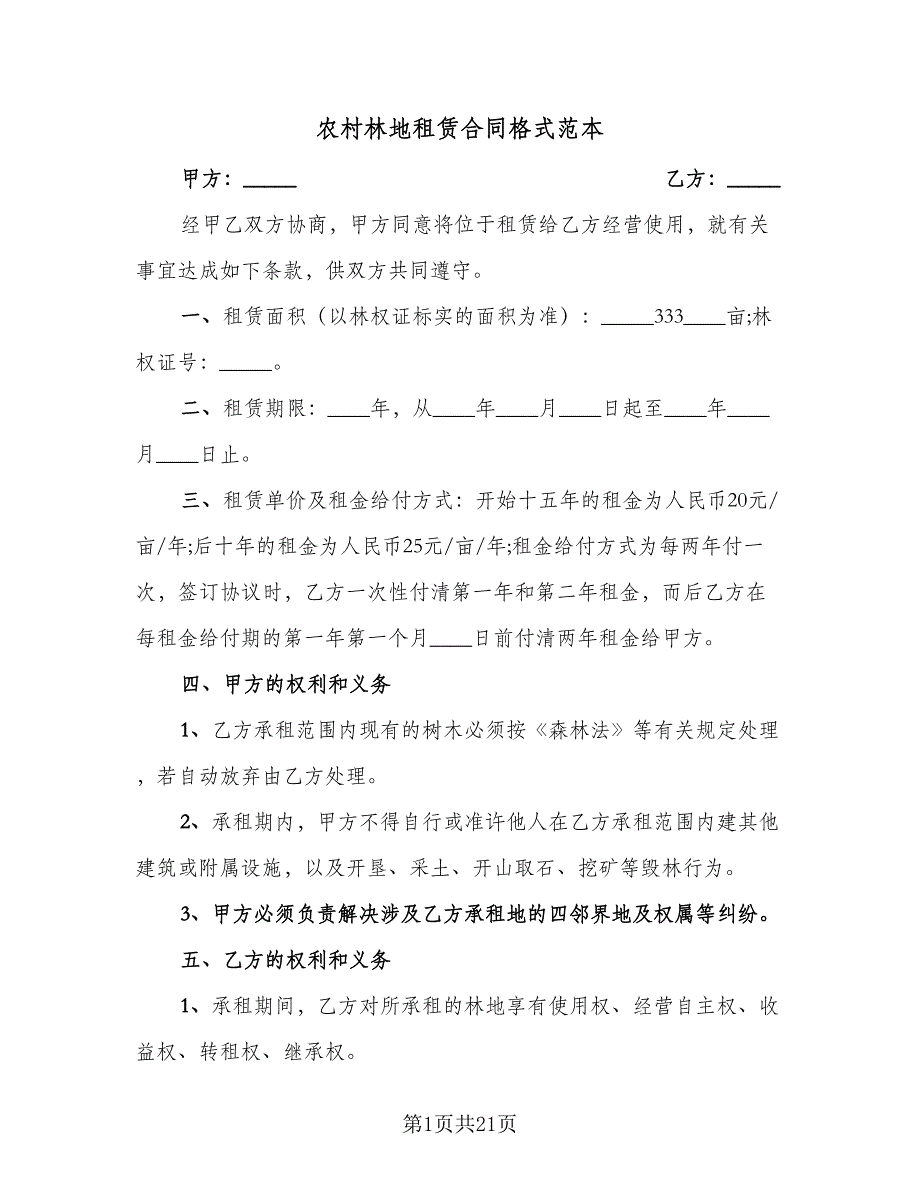 农村林地租赁合同格式范本
甲方：_____ 乙方：_____
经甲乙双方协商，甲方同意将位于租赁给乙方经营使用，就有关
事宜达成如下条款，供双方共同遵守。
一、租赁面积（以林权证标实的面积为准）：_____333____亩;林
权证号：_____。
二、租赁期限：____年，从____年____月____日起至____年____
月____日止。
三、租赁单价及租金给付方式：开始十五年的租金为人民币20元/
亩/年;后十年的租金为人民币25元/亩/年;租金给付方式为每两年付一
次，签订协议时，乙方一次性付清第一年和第二年租金，而后乙方在
每租金给付期的第一年第一个月____日前付清两年租金给甲方。
四、甲方的权利和义务
1、乙方承租范围内现有的树木必须按《森林法》等有关规定处理
，若自动放弃由乙方处理。
2、承租期内，甲方不得自行或准许他人在乙方承租范围内建其他
建筑或附属设施，以及开垦、采土、开山取石、挖矿等毁林行为。
3、甲方必须负责解决涉及乙方承租地的四邻界地及权属等纠纷。
五、乙方的权利和义务
1、承租期间，乙方对所承租的林地享有使用权、经营自主权、收
益权、转租权、继承权。
第1页共21页